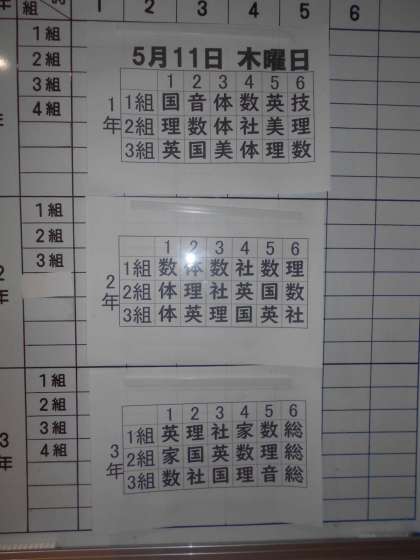 年 組 1 2 3 4 5 6
1組
2組
3組
4組
5月11日 木曜日
1 2 3 4 5 6
1年
1組 国 音 体 数 英 技
2組 理 数 体 社 美 理
3組 英 国 美 体 理 数
2年
1組
2組
3組
1 2 3 4 5 6
2年
1組 数 体 数 社 数 理
2組 体 理 社 英 国 数
3組 体 英 理 国 英 社
3年
1組
2組
3組
4組
1 2 3 4 5 6
3年
1組 英 理 社 家 数 総
2組 家 国 英 数 理 総
3組 数 社 国 理 音 総